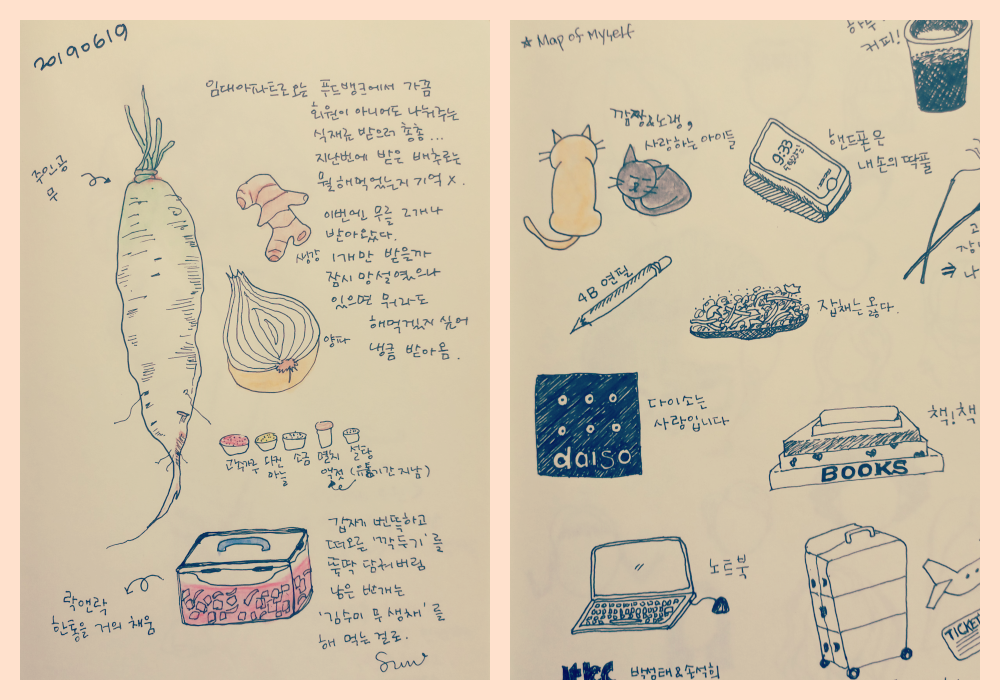 20190619
임대아파트로 오는 푸드뱅크에서 가끔
회원이 아니어도 나눠주는
식재료 받으러 총총...
지난번에 받은 배추로는
뭘 해먹었는지 기억 X.
주인공
무
이번에도 무를 2개나
받아왔다.
생강
1개만 받을까
잠시 망설였으나
있으면 뭐라도
해먹겠지 싶어
냉큼 받아옴.
양파
고춧가루
다진
마늘
소금
멸치
액젓 (유통기간 지남)
설탕
갑자기 번뜩하고
떠오른 '깍두기'를
뚝딱 담궈버림
남은 반개는
'김수미 무생채'를
해 먹는 걸로.
락앤락
한통을 거의 채움
Sun
★ Map of Myself
하루
커피!
깜짱&노랭,
사랑하는 아이들
9:33
핸드폰은
내 손의 딱풀
4B 연필
잡채는 옳다.
다이소는
사랑입니다
daiso
책!책
BOOKS
노트북
TICKET
박성태&손석희